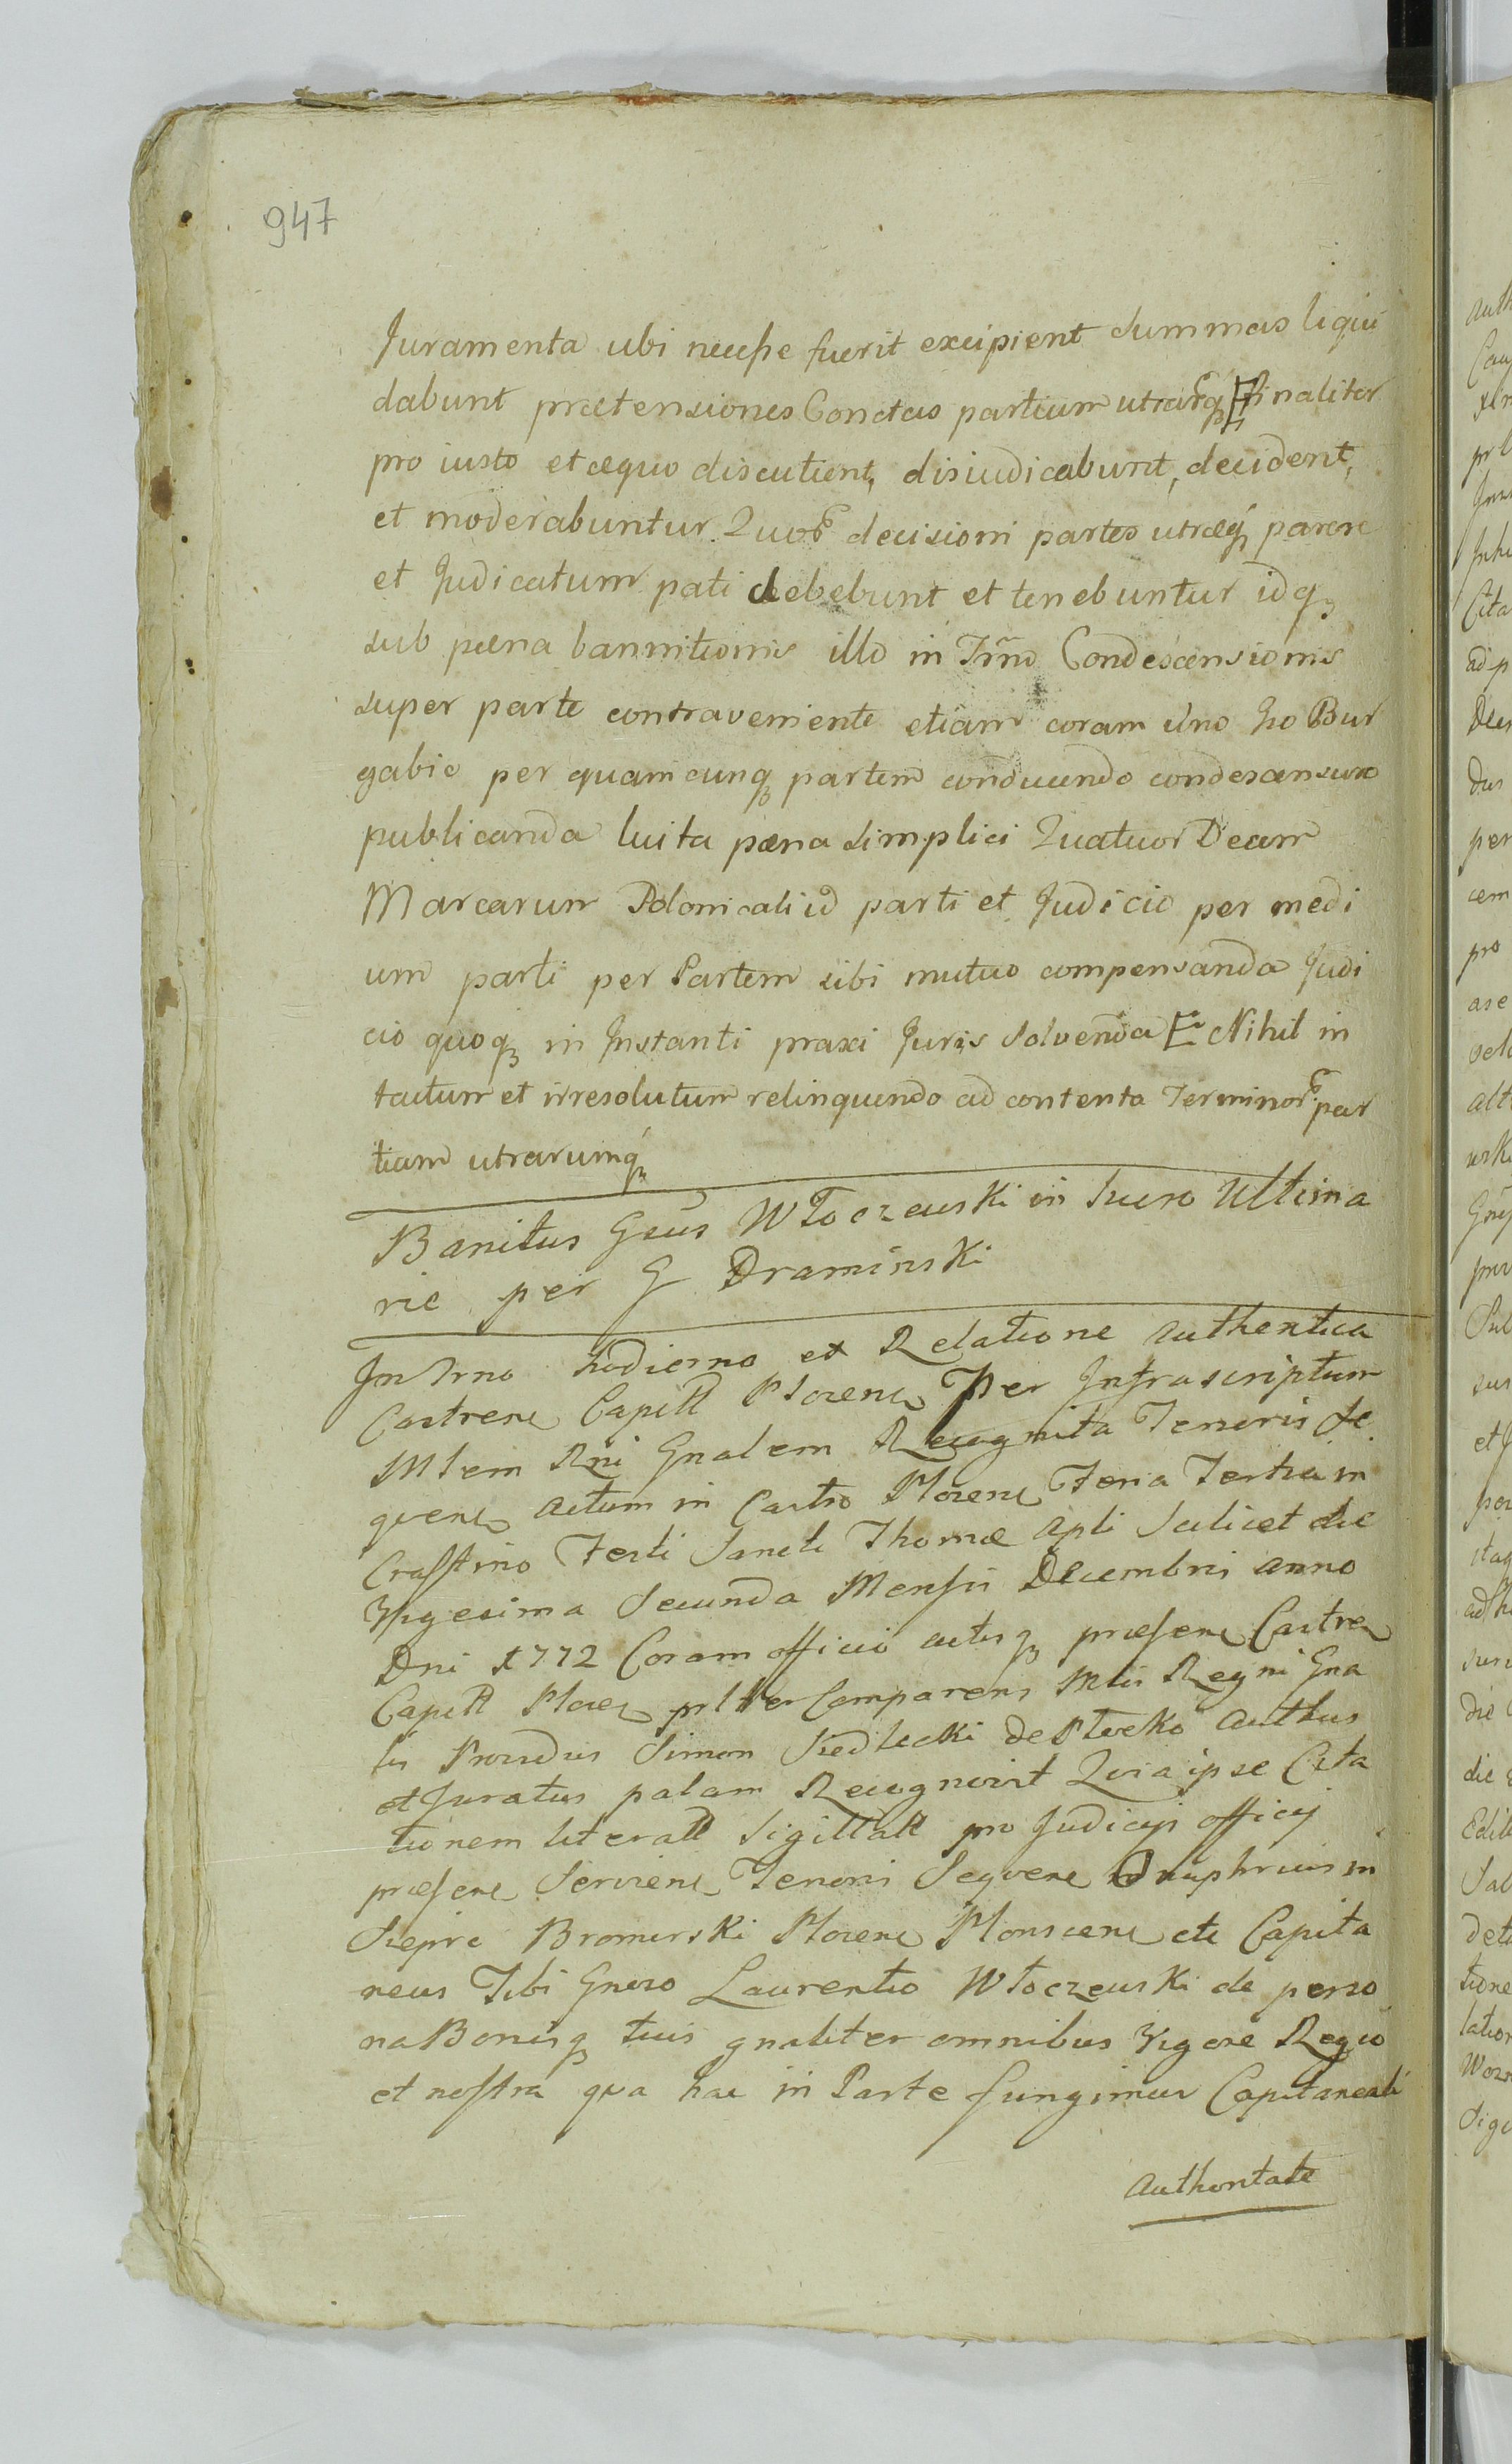 947
Juramenta ubi necesse fuerit excipient summas liqui
dabunt praetensiones Conctas partium utrarq3 Et finaliter
pro iusto et aequo discutient, disiudicabunt, decident,
et moderabuntur. Quor decisioni partes utraeq3 parere
et Judicatum pati debebunt et tenebuntur idq3
sub paena bannitionis illo in Trno Condescensionis
super parte contraveniente etiam coram uno Gso Bur
gabio per quamcunq3 partem conducendo condescensuro
publicanda luita paena simplici Quatuor Decem
Marcarum Polonicaliu parti et Judicio per medi
um parti per Partem sibi mutuo compensanda Judi
cio quoq3 in Instanti praxi Juris Solvenda Et Nihil in
tactum et irresolutum relinquendo ad contenta Terminor par
tium utrarumq3
Banitus Gsus Włoczewski in Lucro Ultima
rie per G Draminski
In Trno hodierno ex Relatione authentica
Castren Capitt Plocen Per Infrascriptum
Mtrem Rni Gnalem Recognita Tenoris Se
quen Actum in Castro Plocen Feria Tertia in
Crastino Festi Sancti Thomae Apli Scilicet die
Vigesima Secunda Mensis Decembris anno
Dni 1772 Coram officio actisq3 praesen Castren
Capitt Plocen prlter Comparens Mtris Regni Gna
lis Providus Simon Siedlecki de Płocko Authus
et Juratus palam Recognovit Quia ipse Cita
tionem literatt Sigillatt pro Judicys officy
praesen Servien Tenoris Sequen Onuphrius in
Sieprc Bromirski Plocen Plonscen etc Capita
neus Tibi Gneroso Laurentio Włoczewski de perso
na Bonisq3 tuis gnaliter omnibus Vigore Regio
et nostra qua hac in Parte fungimur Capitaneali
authoritate